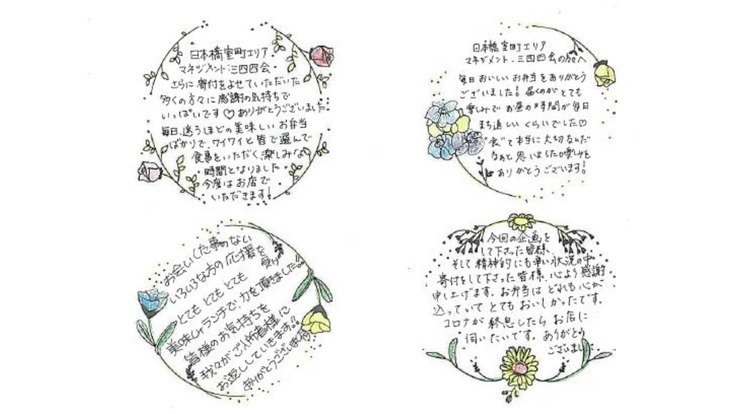 日本橋室町エリア
マネジメント・三四四会
さらに寄付をよせていただいた
多くの方々に感謝の気持ちで
いっぱいです♡ありがとうございました
毎日、違うほどの美味しいお弁当
ばかりで、ワイワイと皆で選んで
食事をいただく、楽しみな
時間となりました
今度はお店で
いただきます!
日本橋室町エリア
マネジメント・三四四会の方々へ
毎日おいしいお弁当をありがとう
ございました!届くのがとても
楽しみでお昼の時間が毎日
まち遠しいくらいでした♡
"食"て本当に大切なんだ
なぁと思いました
ありがとうございます!
お会いした事のない
いろいろな方の応援を受け
とても とても とても
美味しいランチで、力を頂きました!!
皆様のお気持ちを
我々がご入所者様に
お返ししていきます!!
ありがとうございました
今回の企画を
して下さった皆様、
そして精神的にも辛い状況の中
寄付をして下さった皆様、心より感謝
申し上げます。お弁当はどれも心が
込っていてとてもおいしかったです。
コロナが終息したらお店に
伺いたいです。ありがとう
ございました